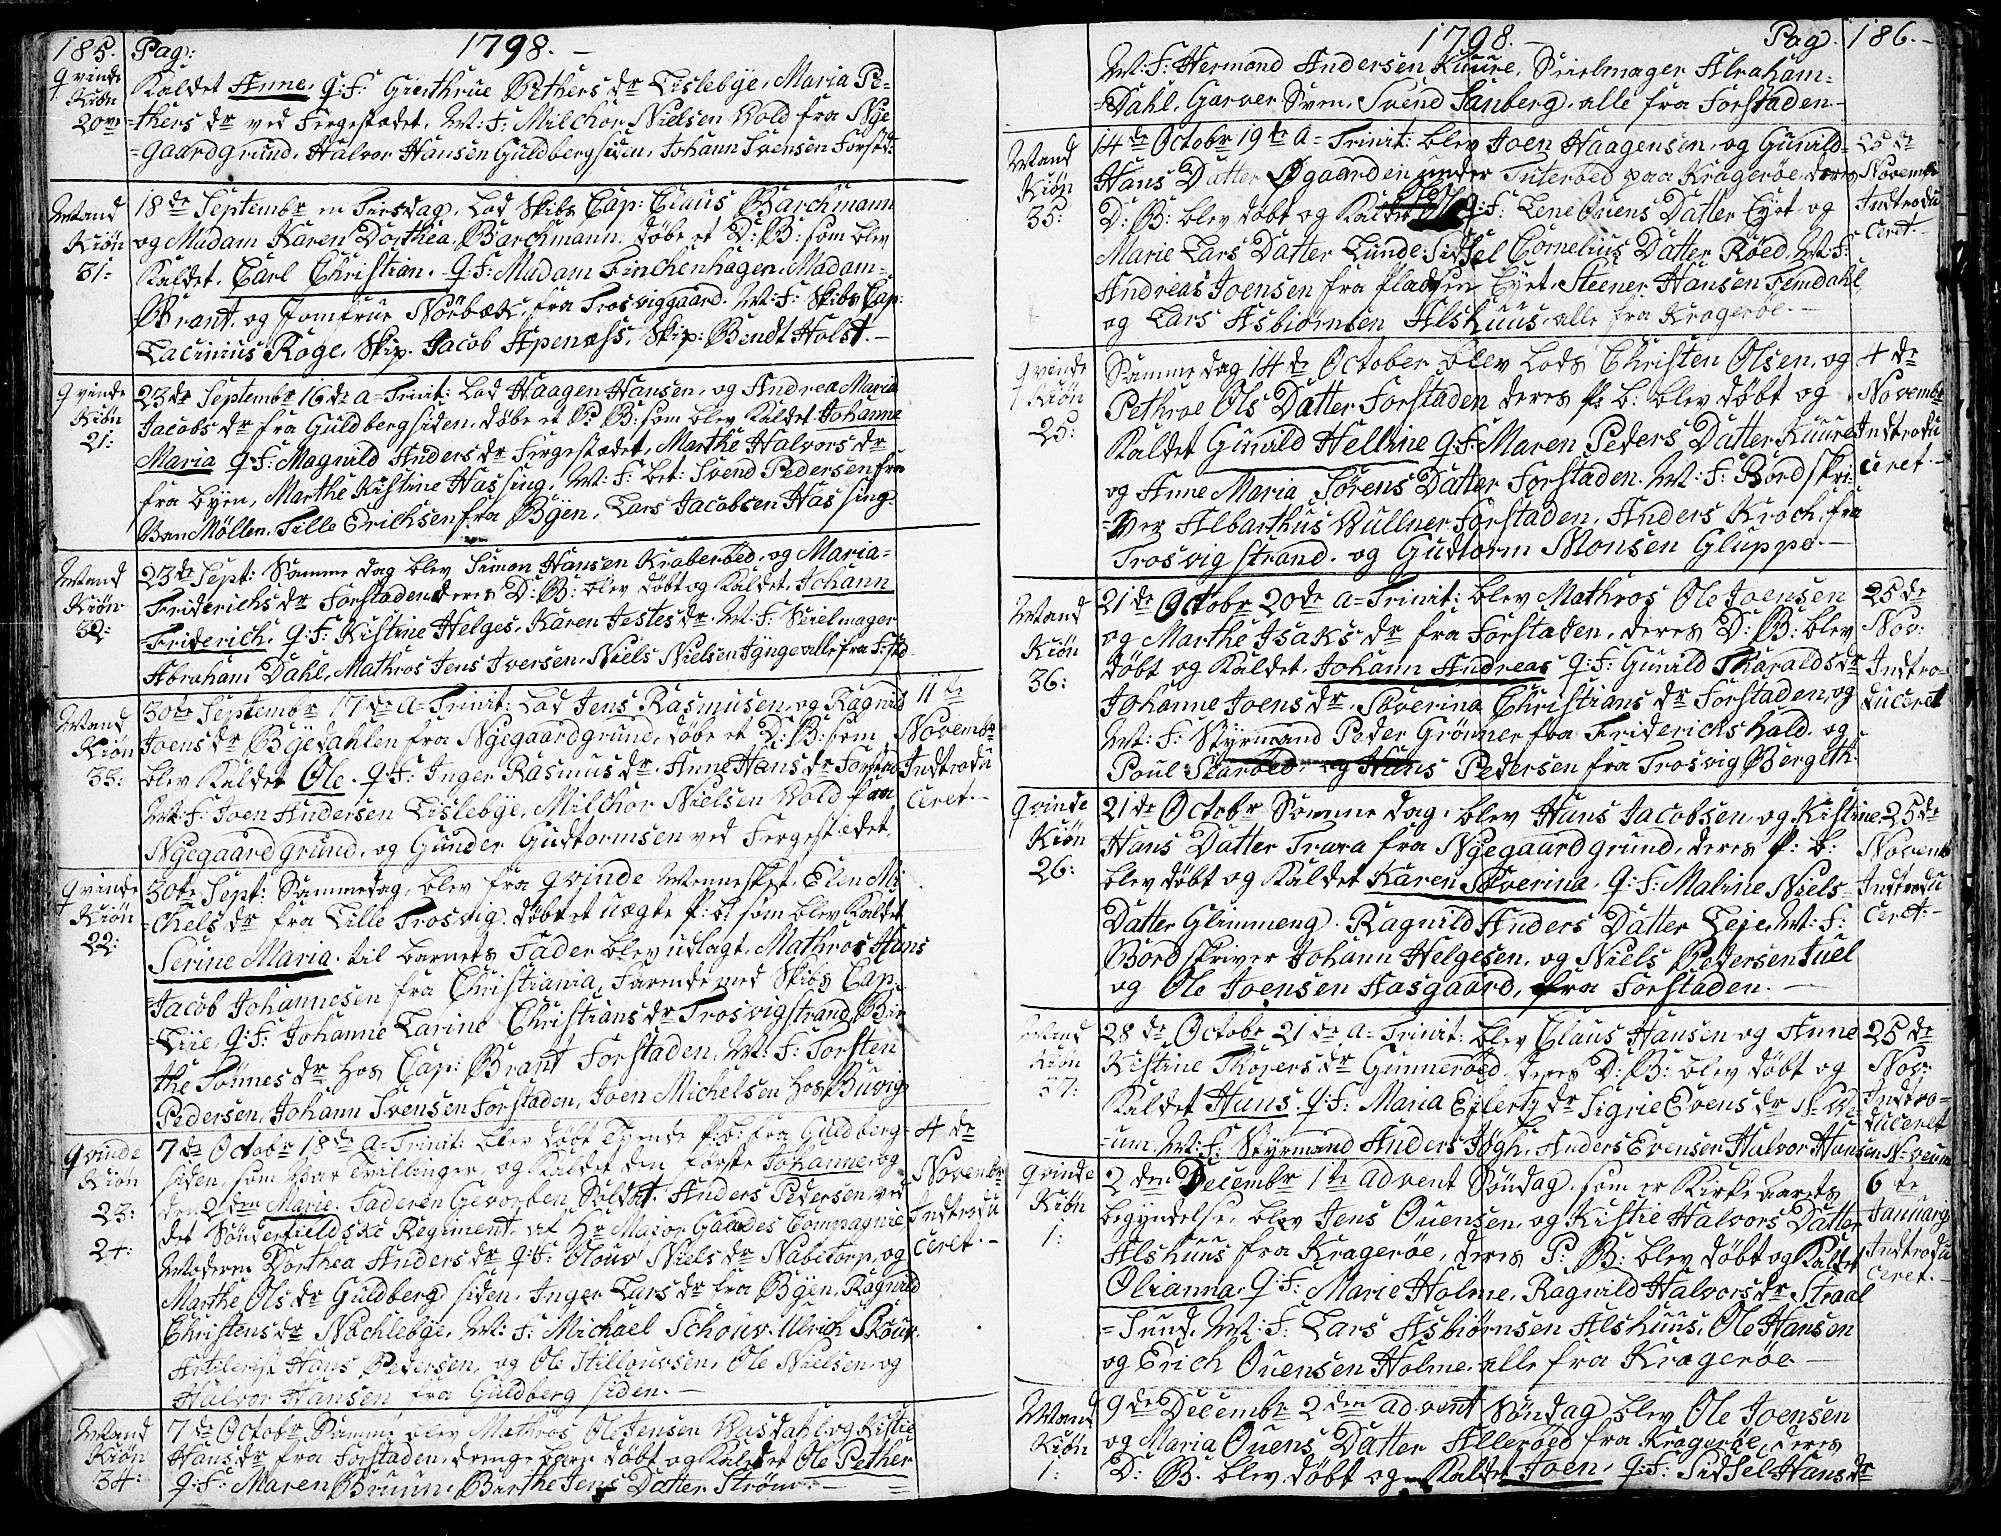 185. Pag: 1798.
Qvinde Kiøn 20ve
Kaldet Anne. Q:F: Giertrue Pethers dr Lislebÿe, Maria Pe-
thers dr ved Fergestædet. M:F: Milchor Nielsen Wold fra Nÿe
gaardgrund, Halvor Hansen Guldbergsiden, Johann Svensen Forstd:
Mand Kiøn 31:
18de Septembr en Tirsdag. Lod Skibs Cap: Claus Barchmann
og Madam Karen Dorthea Barchmann, døbe et D:B: som blev
Kaldet. Carl Christian. Q:F: Madam Finchenhagen, Madam
Brant. og Jomfrue Nörbæk, fra Trosviggaard. M:F: Skibs Cap:
Lacinius Roge, Skip. Jacob Apenæss, Skip: Bendt Holst.
Qvinde Kiøn 21:
23de Septembr 16de a=Trinit: Lod Haagen Hansen, og Andrea Maria
Jacobs dr fra Guldbergsiden, døbe et P:B: som blev Kaldet Johanne
Maria Q:F: Magnild Anders dr Fergestædet, Marthe Halvors dr
fra byen, Marthe Kistine Hassing. M:F: Svend Pedersen fra
Møllen. Tille Erichsen fra Bÿen, Lars Jacobsen Hassing
Mand Kiøn 32:
23de Sept: Samme dag blev Simon Hansen Kraberöed, og Maria
Friderichs dr Forstaden deres D:B: blev døbt og Kaldet. Johann
Friderich. Q:F: Kistine Helges, Karen Jestes dr M:F: Seielmager
Abraham Dahl, Mathros Jens Iversen, Niels Nielsen Jÿnge alle fra F:std.
Mand Kiøn 33:
30te Septembr 17de A=Trinit: Lod Jens Rasmusen, og Ragnild
Joens dr Bÿedahlen fra Nÿegaardgrund, døbe et D:B: som
blev Kaldet Ole. Q:F: Inger Rasmus dr, Anne Hans dr Forstad
M:F: Joen Andersen Lislebÿe, Milchor Nielsen Wold fra
Nÿegaardgrund, og Gunder Gudtormsen ved Fergestædet.
11te Novembr Indtroduceret.
Qvinde Kiøn 22:
30te Sept: Sammedag, blev fra qvinde Mennesket, Elen Mi
chels dr fra Lille Trosvig døbt et uægte P:B: som blev Kaldet
Serine Maria. til barnets Fader blev udlagt, Mathros Hans
Jacob Johannesen fra Christiania, Farende med Skibs Cap.
Liie, Q:F: Johanne Larine Christians dr Trosvigstrand, Bir
the Tønnes dr hos Cap: Brant Forstaden, M:F: Torsten
Pedersen, Johann Svensen Forstaden, Joen Michelsen hos Buvig
Qvinde Kiøn 23: 24:
7de Octobr 18de A=Trinit: blev døbt Tvende P:b: fra Guldberg-
siden, som var Tvillinger, og Kaldet den første Johanne, og
den 2den Marie. Faderen Gevorben Soldat Anders Pedersen, ved
det Sönderfieldske Regiment af Hr Major Gaades Compagnie
Moderen Dorthea Anders dr Q:F: Olouv Niels dr Nabetorp, og
Marthe Ols dr Guldberg siden, Inger Lars dr fra Bÿen, Ragnild
Christens dr Nochlebÿe. M:F: Michael Schouv, Ulrich Skouv.
Artilerist Hans Pedersen, og Ole Stillouvsen, Ole Nielsen og
Halvor Hansen fra Guldberg siden.
4de Novembr Indtroduceret.
Mand Kiøn 34:
7de Octobr Samme blev Mathros Ole Jensen Wasdahl og Kistie
Hans dr fra Forstaden, drenge barn døbt og Kaldet Ole Pether
Q:F: Maren Bruun, Birthe Jens Datter Ström.
1798. Pag. 186.
M:F: Hermand Andersen Kuure, Seielmager Abraham
Dahl, Garver Sven, Svend Sanberg, alle fra Forstaden
Mand Kiøn 35:
14de Octobr 19te A=Trinit: blev Joen Haagensen, og Gunild
Hans Datter Øgaarden under Tuteröed paa Kragerøe, deres
D:B: blev døbt og Kaldet Q:F: Lene Ouens Datter Eÿet og
Marie Lars Datter Lunde, Sidsel Cornelius Datter Röed, M:F:
Andreas Joensen fra Pladsen Eÿet, Steener Hansen Femdahl,
og Lars Asbiørnsen Alshuus, alle fra Kragerøe.
25de Novembr Indtroduceret.
Qvinde Kiøn 25:
Sammedag 14de October blev Lods Christen Olsen, og
Pethroe Ols Datter Forstaden deres P: b: blev døbt og
Kaldet Gunild Helline Q:F: Maren Peders Datter Kuure
og Anne Maria Sörens Datter Forstaden. M:F: Bordskri-
ver Albarthus Wullner Forstaden, Anders Kroch, fra
Trosvig strand. og Gudtorm Monsen Gluppe.
4de Novembr Indtroduceret.
Mand Kiøn 36:
21de Octobr 20de A=Trinit: blev Mathros Ole Joensen
og Marthe Isaks dr fra Forstaden, deres D:B: blev
døbt og Kaldet. Johann Andreas Q:F: Gunild Tharalds dr
Johanne Joens dr, Severina Christians dr Forstaden, og
M:F: Styrmand Peder Grönner fra Friderichshald, og
Poul og Hans Pedersen fra Trosvig Bergeth.
25de Nov: Indtroduceret
Qvinde Kiøn 26:
21de Octobr Samme dag, blev Hans Jacobsen, og Kistine
Hans Datter Trara fra Nÿegaardgrund, deres P: b:
blev døbt og Kaldet Karen Severina. Q:F: Maline Niels
Datter Glimmeng, Ragnild Anders Datter Leje, M:F:
Bordskriver Johann Helgesen, og Niels Pedersen Juel
og Ole Joensen Aasgaard, fra Forstaden.
25de Novemb Indtroduceret.
Mand Kiøn 37:
28de Octobr 21de A=Trinit: blev Claus Hansen og Anne
Kistine Thoers dr Gunneröed, deres D:B: blev døbt og
Kaldet Hans. Q:F: Maria Eilertz dr Sigrie Evens dr N:We-
um. M:F: Styrmand Anders Högh, Anders Evensen Halvor Hansen N: Veum
25de Nov: Indtroduceret
Qvinde Kiøn 1:
2den Decembr 1te Advent Söndag, som er Kirke Aarets
begÿndelse, blev Jens Ouensen, og Kistie Halvors Datter
Alshuus fra Kragerøe, deres P:B: blev døbt og Kaldet
Olianna, Q:F: Marie Holme, Ragnild Halvors dr Straal
Sund, M:F: Lars Asbiørnsen Alshuus, Ole Hansen
og Erich Ouensen Holme, alle fra Kragerøe
6te Januarÿ Indtroduceret.
Mand Kiøn 1:
9de Decembr 2den Advent Söndag blev Ole Joensen
og Maria Ouens Datter Alleröed fra Kragerøe, deres
D: B. blev døbt og Kaldet Joen, Q:F: Sidsel Hans dr